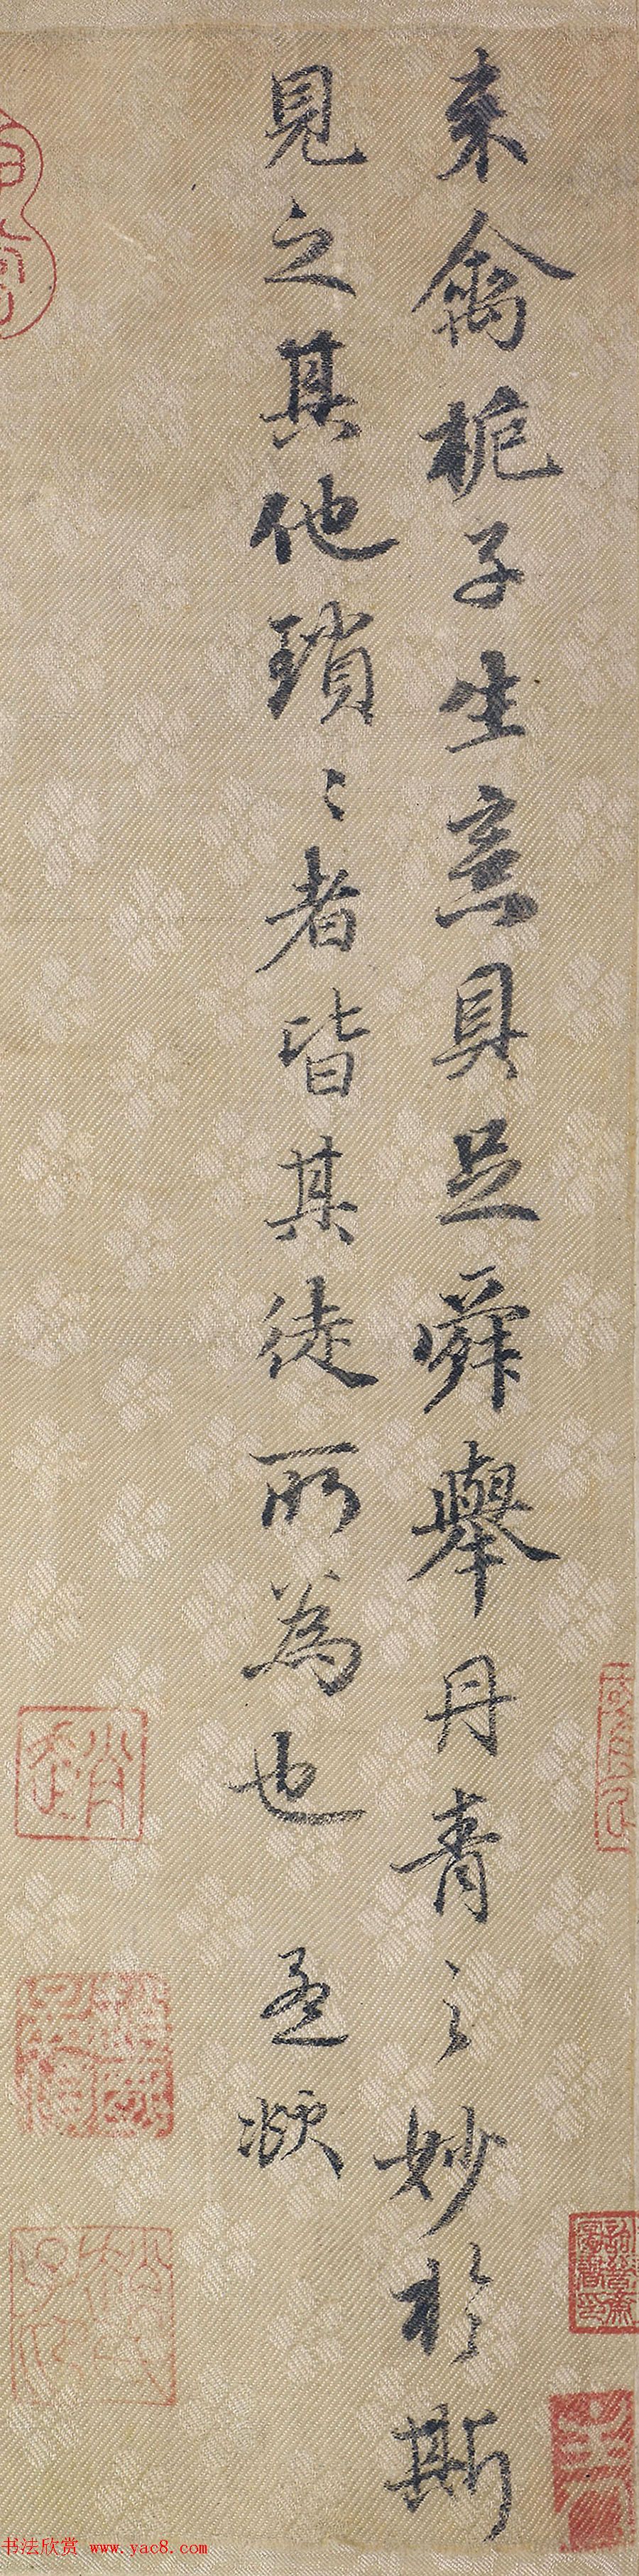 来禽栀子生意具足舜舉丹青之妙於斯
見之其他瑣々者皆其徒所為也 孟頫
書法欣赏 www.yac8.com